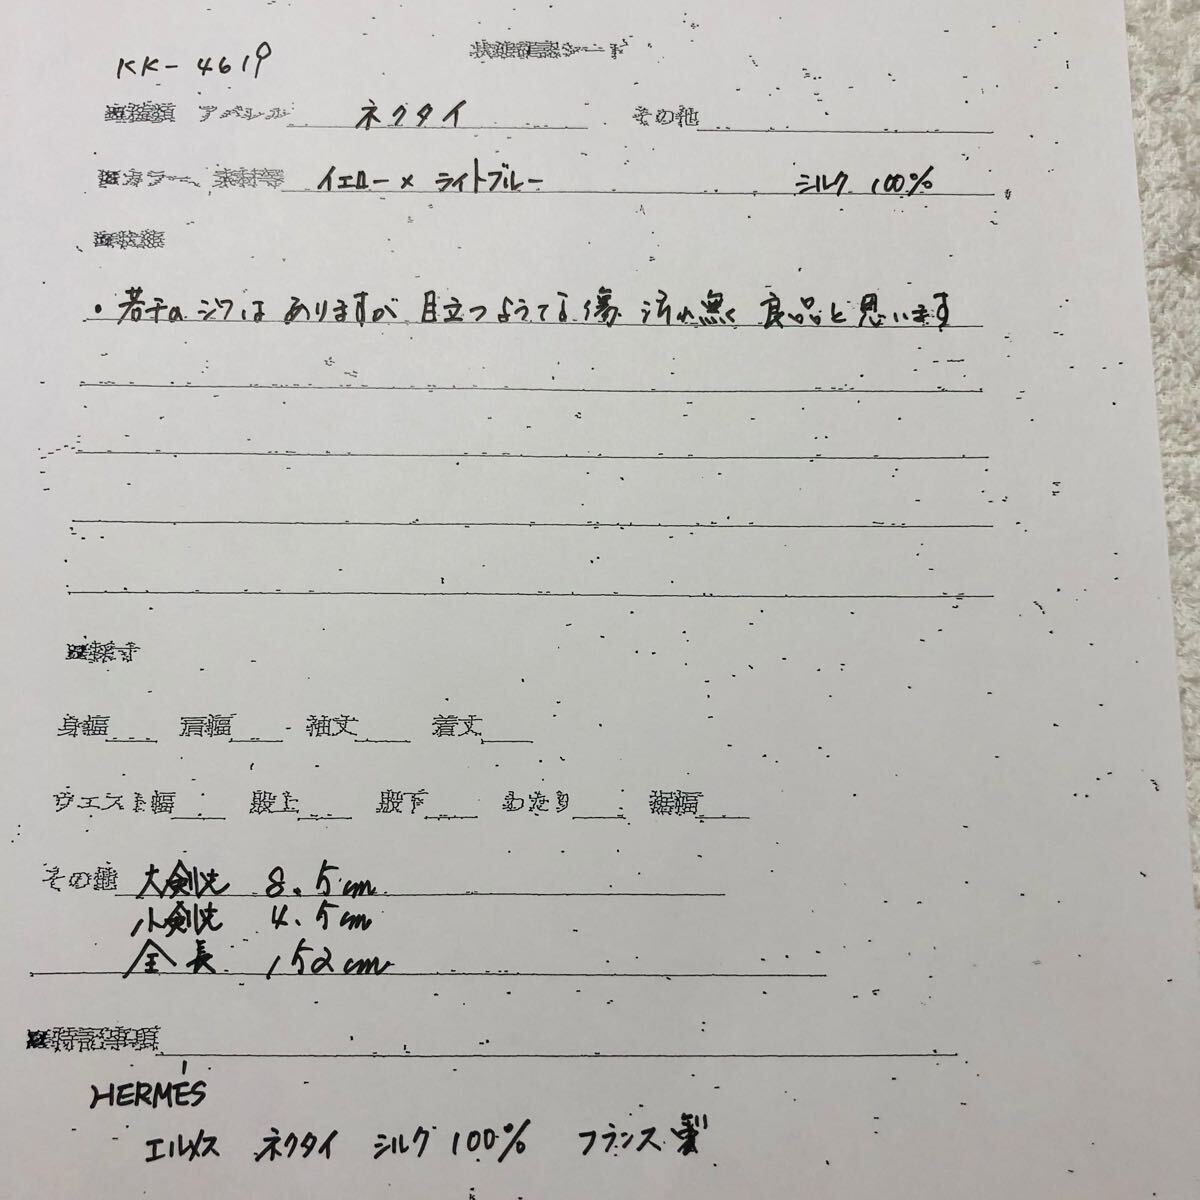 KK-4619
状態確認シート
■種類 アパレル ネクタイ その他
■カラー、素材等 イエロー×ライトブルー シルク 100%
■状態
・若干のシワはありますが 目立つようてな傷 汚れ無く 良品と思います
■採寸
身幅 肩幅 袖丈 着丈
ウエスト幅 股上 股下 わたり 裾幅
その他 大剣先 8.5cm
小剣先 4.5cm
全長 152cm
■特記事項
HERMÉS
エルメス ネクタイ シルク 100% フランス製